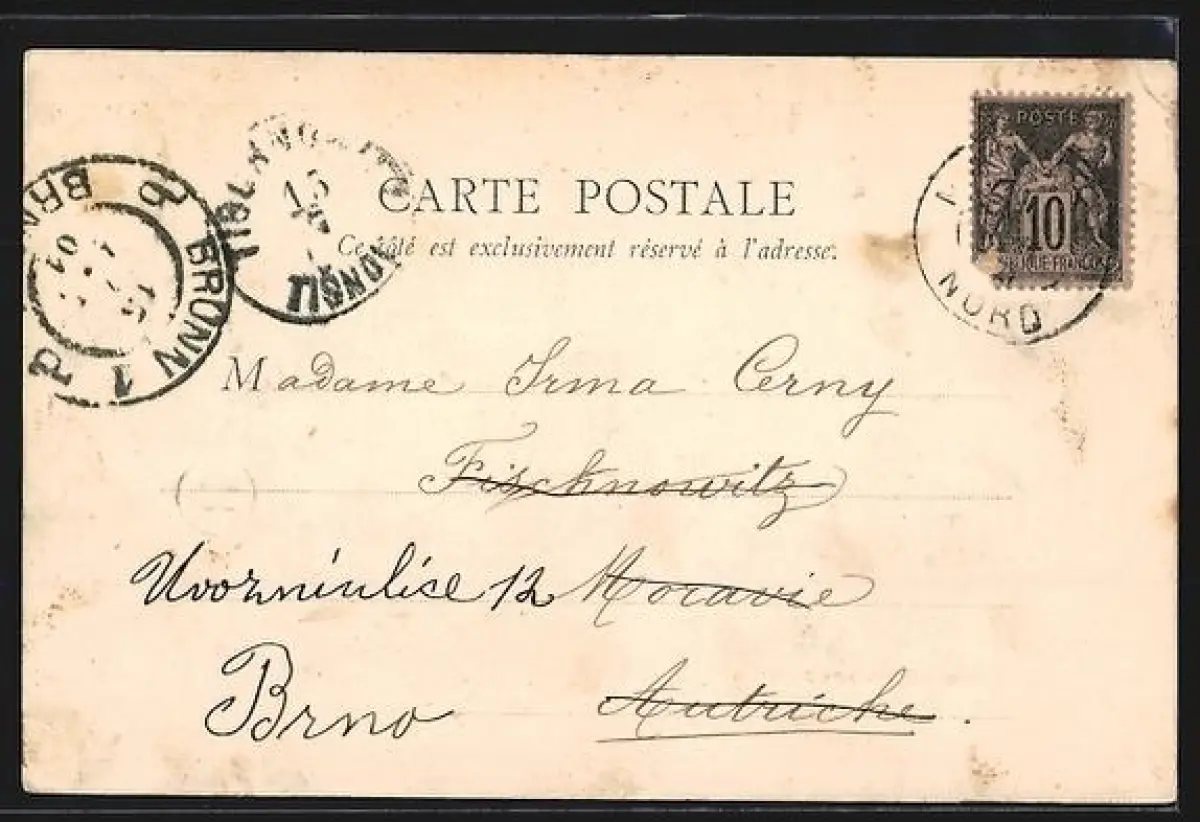 POSTE
10
RÉPUBLIQUE FRANÇAISE
NORD
BRÜNN 1
CARTE POSTALE
Ce côté est exclusivement réservé à l'adresse.
Madame Irma Cerny
Fischnowitz
Úvozní ulice 12 Moravie
Brno Autriche.